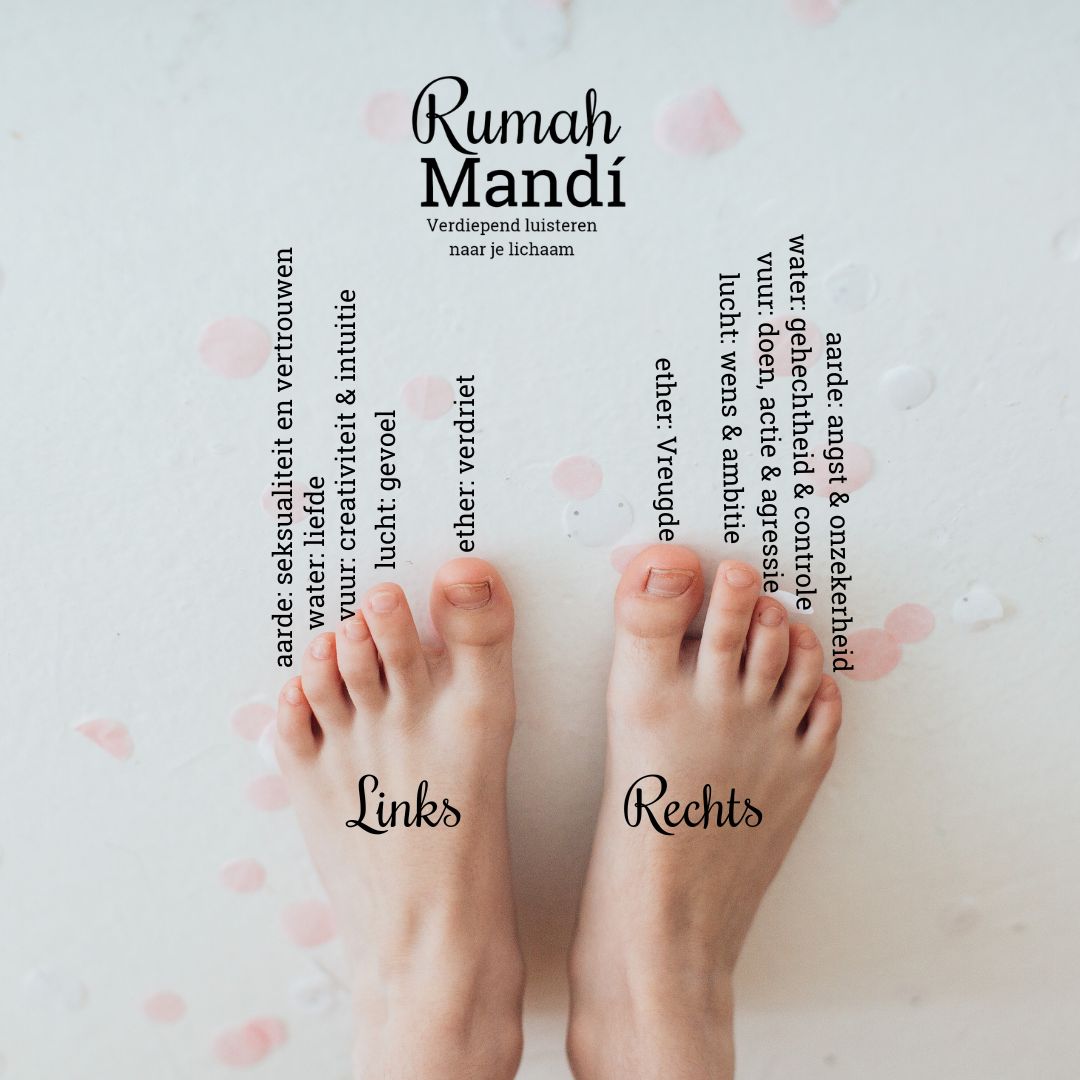 Rumah
Mandí
Verdiepend luisteren
naar je lichaam
aarde: seksualiteit en vertrouwen
water: liefde
vuur: creativiteit & intuitie
lucht: gevoel
ether: verdriet
ether: Vreugde
lucht: wens & ambitie
vuur: doen, actie & agressie
water: gehechtheid & controle
aarde: angst & onzekerheid
Links
Rechts